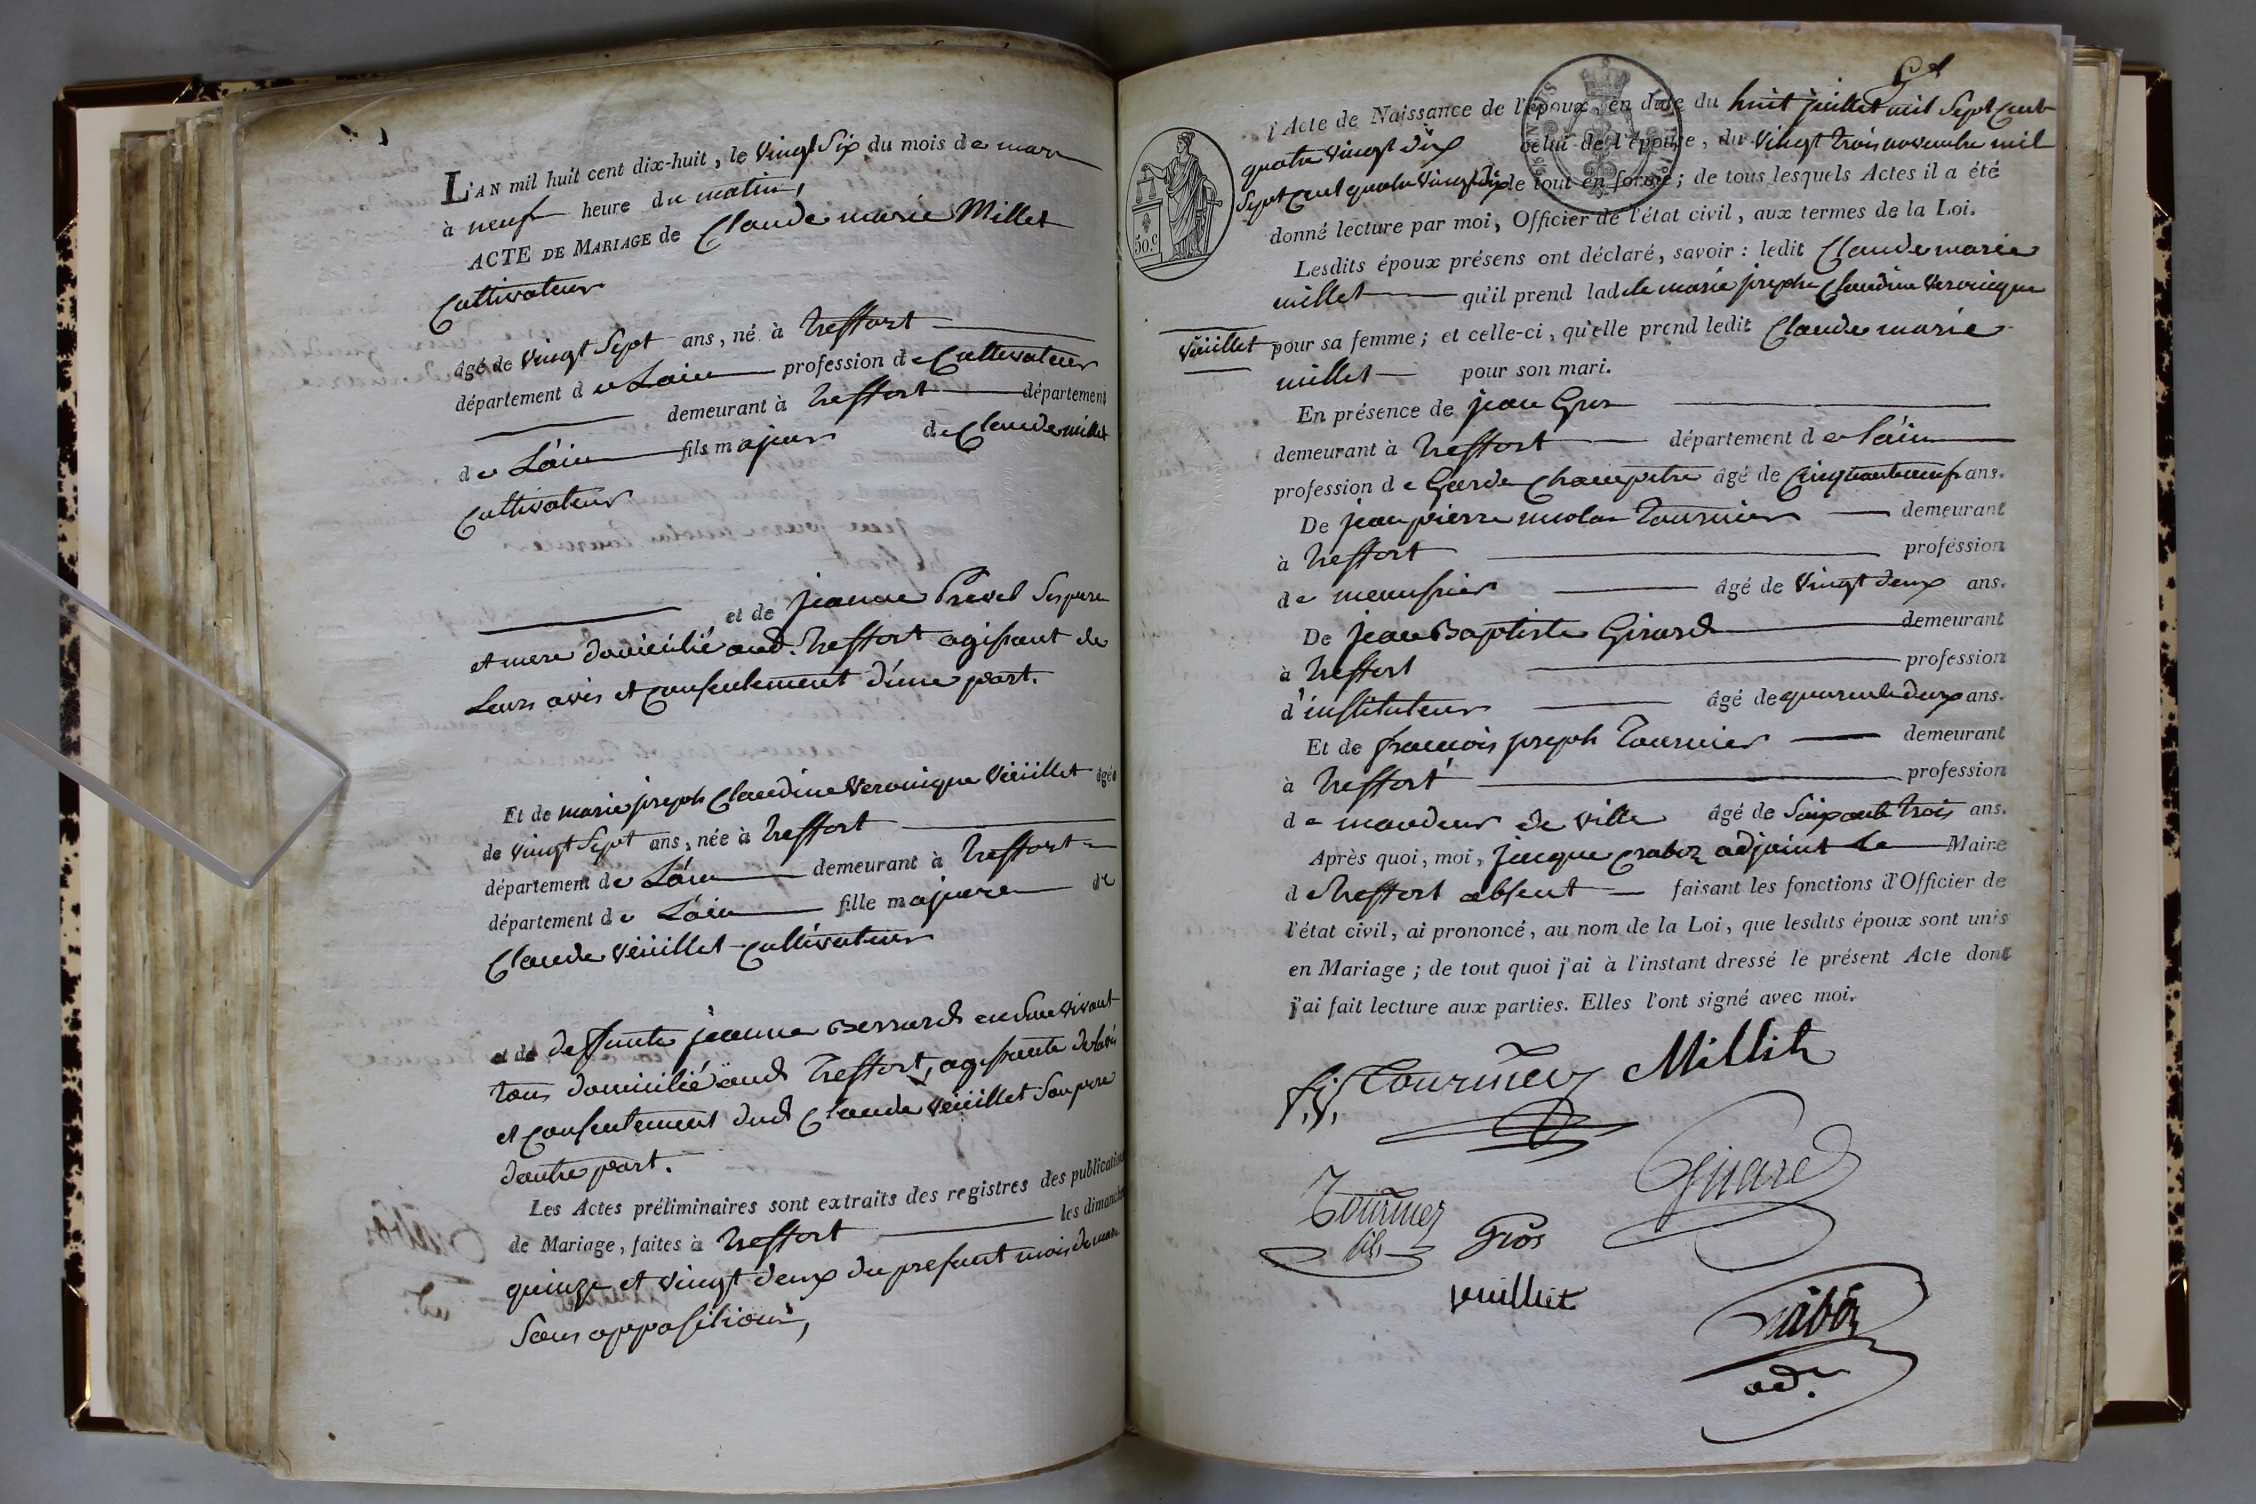 L'AN mil huit cent dix-huit, le vingt Six du mois de mars
à neuf heure du matin,
ACTE DE MARIAGE de Claude marie Millet
Cultivateur
âgé de vingt Sept ans, né à treffort
département de Lain profession de Cultivateur
demeurant à treffort département
de L'ain fils majeur de Claude millet
Cultivateur
et de jeanne Prevel Ses pere
et mere domicilié aud. treffort agissant de
Leurs avis et Consentement d'une part.
Et de marie joseph Claudine Veronique Veüillet âgée
de vingt Sept ans, née à treffort
département de L'ain demeurant à treffort
département de L'ain fille majeure de
Claude Veüillet Cultivateur
et de deffunte jeanne Bernard en Son vivant
tous domicilié aud treffort, agissante de l'avis
et Consentement dud Claude Veüillet Son pere
d'autre part.
Les Actes préliminaires sont extraits des registres des publications
de Mariage, faites à treffort les dimanches
quinze et vingt deux du present mois de mars
Sans opposition,
l'Acte de Naissance de l'époux, en date du huit juillet mil Sept Cent
quatre vingt dix celui de l'épouse, du vingt trois novembre mil
Sept Cent quatre vingt dix le tout en forme; de tous lesquels Actes il a été
50.c
donné lecture par moi, Officier de l'état civil, aux termes de la Loi.
Lesdits époux présens ont déclaré, savoir : ledit Claude marie
millet qu'il prend ladite marie joseph Claudine Veronique
Veüillet pour sa femme; et celle-ci, qu'elle prend ledit Claude marie
millet pour son mari.
En présence de jean Gros
demeurant à treffort département de L'ain
profession de Garde Champetre âgé de Cinquante neuf ans.
De jean pierre nicolas Tournier demeurant
à treffort profession
de menusier âgé de vingt deux ans.
De jean Baptiste Girard demeurant
à treffort profession
d'instituteur âgé de quarente deux ans.
Et de francois joseph Tournier demeurant
à treffort profession
de mandeur de ville âgé de Soixante trois ans.
Après quoi, moi, jacque Craboz adjoint Le Maire
de treffort absent faisant les fonctions d'Officier de
l'état civil, ai prononcé, au nom de la Loi, que lesdits époux sont unis
en Mariage; de tout quoi j'ai à l'instant dressé le présent Acte dont
j'ai fait lecture aux parties. Elles l'ont signé avec moi.
f.j. Tournier Millit
Girard
Tournier
fils Gros
vuilliet
ad.